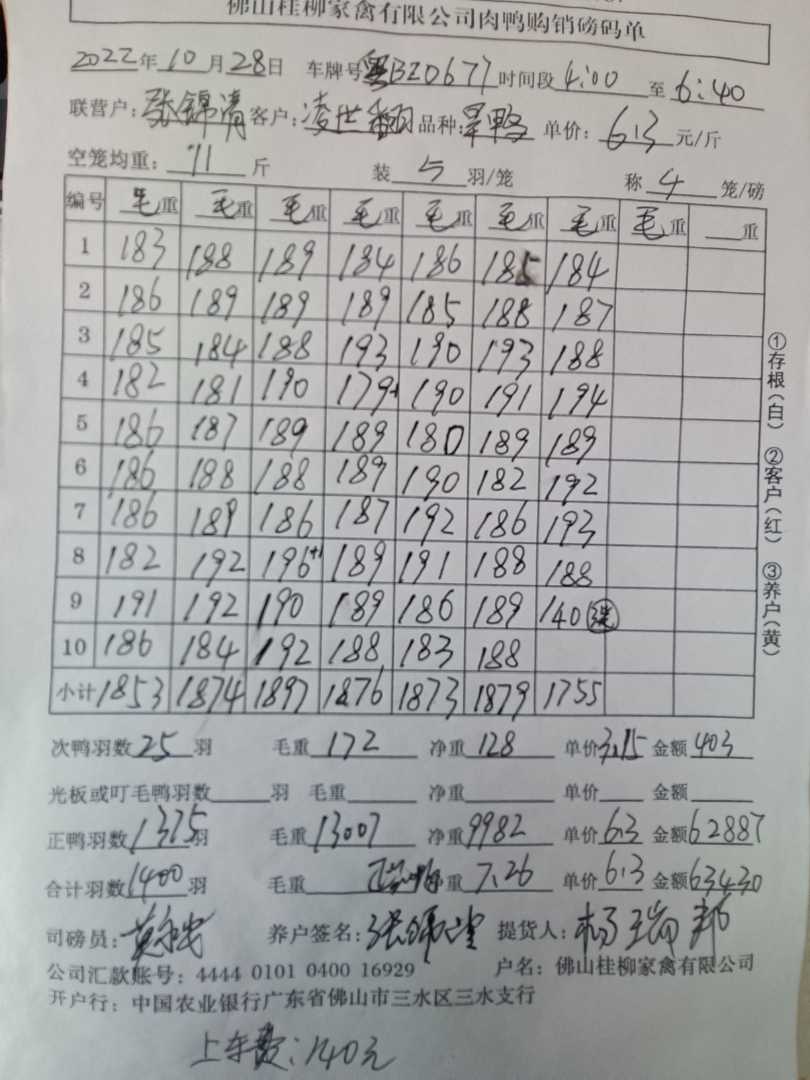 佛山桂柳家禽有限公司肉鸭购销磅码单
2022年10月28日 车牌号粤BZ0677时间段4:00至6:40
联营户:张锦清 客户:凌世 品种: 鸭 单价:6.3元/斤
空笼均重:11斤 装5羽/笼 称4笼/磅
编号 毛重 毛重 毛重 毛重 毛重 毛重 毛重 毛重 重
1 183 188 189 184 186 185 184
2 186 189 189 189 185 188 187
3 185 184 188 193 190 193 188
4 182 181 190 179+ 190 191 194
5 186 187 189 189 180 189 189
6 186 188 188 189 190 182 192
7 186 189 186 187 192 186 193
8 182 192 196+1 189 191 188 188
9 191 192 190 189 186 189 140
10 186 184 192 188 183 188
小计 1853 1874 1897 1876 1873 1879 1755
次鸭羽数25羽 毛重172 净重128 单价3.15金额403
光板或叮毛鸭羽数 羽 毛重 净重 单价 金额
正鸭羽数1375羽 毛重13007 净重9982 单价6.3金额62887
合计羽数1400羽 毛重 净重7.26 单价6.3金额63430
司磅员: 养户签名:张锦 提货人:杨瑞邦
公司汇款账号:4444 0101 0400 16929 户名:佛山桂柳家禽有限公司
开户行:中国农业银行广东省佛山市三水区三水支行
上车费:140元
①存根(白) ②客户(红) ③养户(黄)